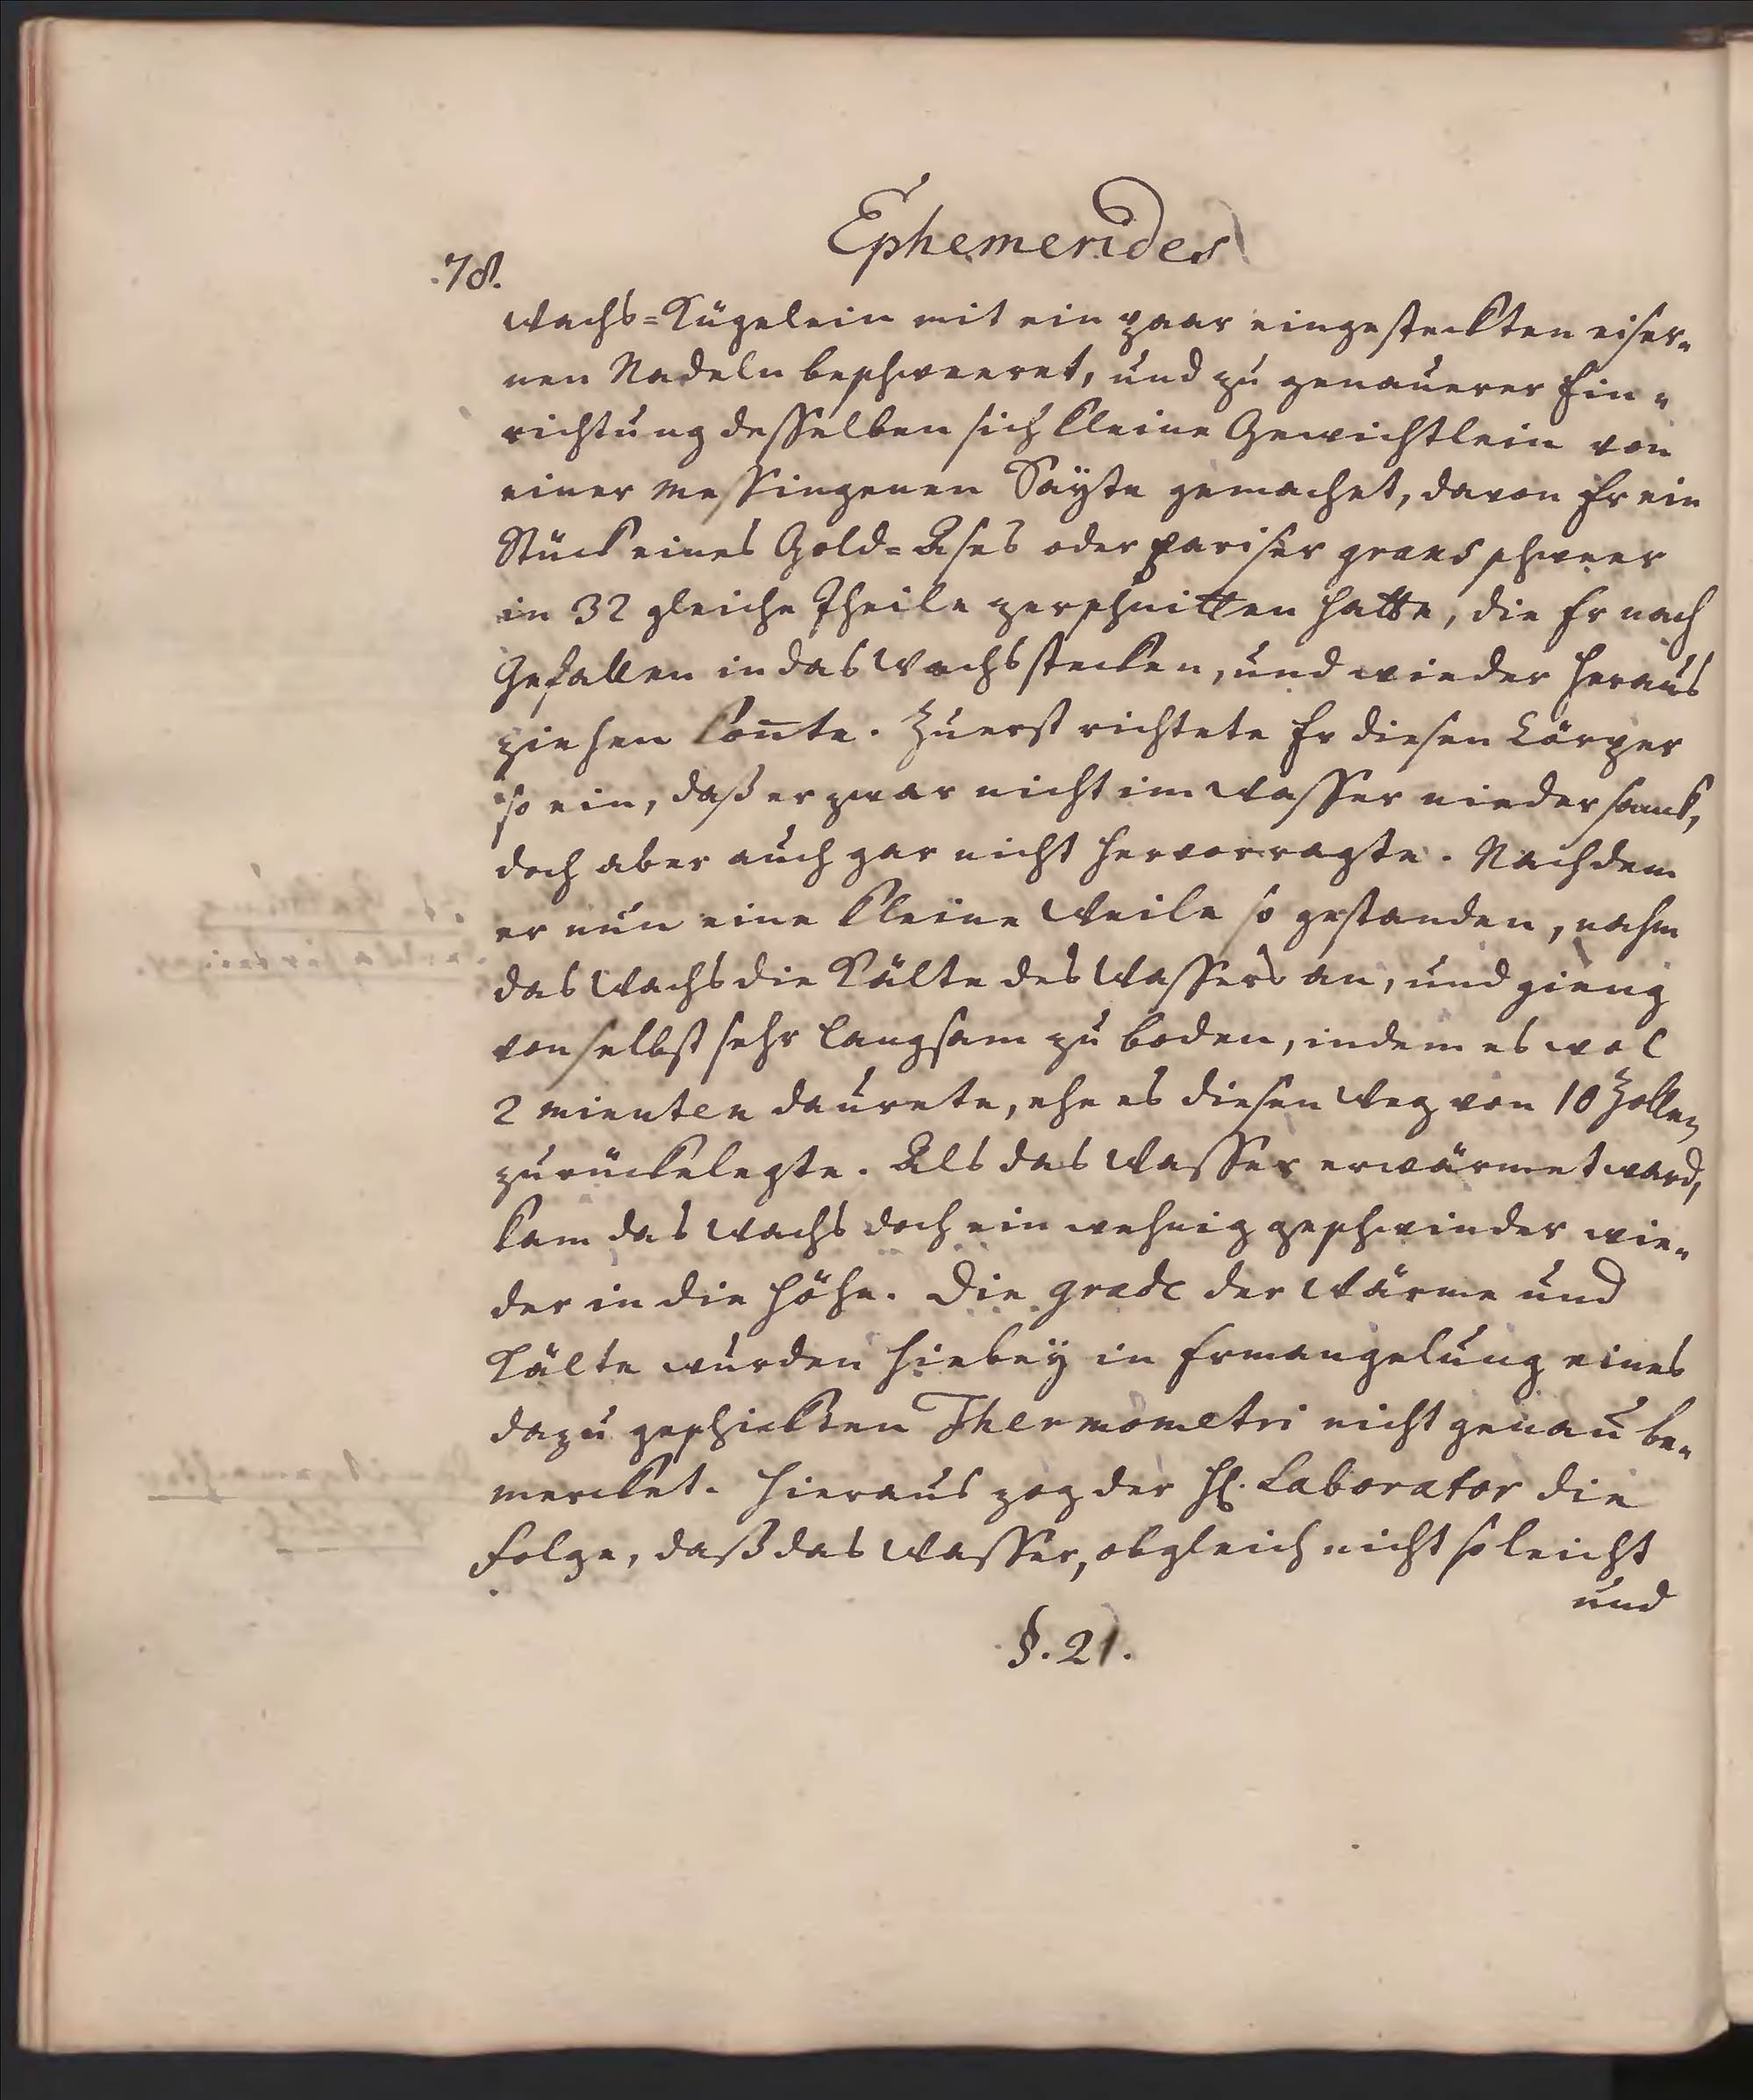 Ephemerides
.78.
Wachs=Kügelein mit ein paar eingesteckten eiser„
nen Nadeln beschweeret, und zu genauerer Ein„
richtung desselben sich kleine Gewichtlein von
einer messingenen Säyte gemachet, davon Er ein
Stück eines Gold=Ases oder pariser grans schweer
in 32 gleiche Theile zerschnitten hatte, die Er nach
Gefallen in das Wachs stecken, und wieder heraus
ziehen kon̄te. Zuerst richtete Er diesen Körper
so ein, daß er zwar nicht im Wasser niedersanck,
doch aber auch gar nicht hervorragte. Nachdem
er nun eine kleine Weile so gestanden, nahm
das Wachs die Kälte des Wassers an, und gieng
von selbst sehr langsam zu boden, indem es wol
2 minuten daurete, ehe es diesen Weg von 10 Zollen
zurückelegte. Als das Wasser erwärmet ward,
kam das Wachs doch ein wehnig geschwinder wie„
der in die Höhe. Die grade der Wärme und
Kälte wurden hiebey in Ermangelung eines
dazu geschickten Thermometri nicht genau be„
mercket. Hieraus zog der H. Laborator die
Folge, daß das Wasser, obgleich nicht so leicht
und
§. 21.